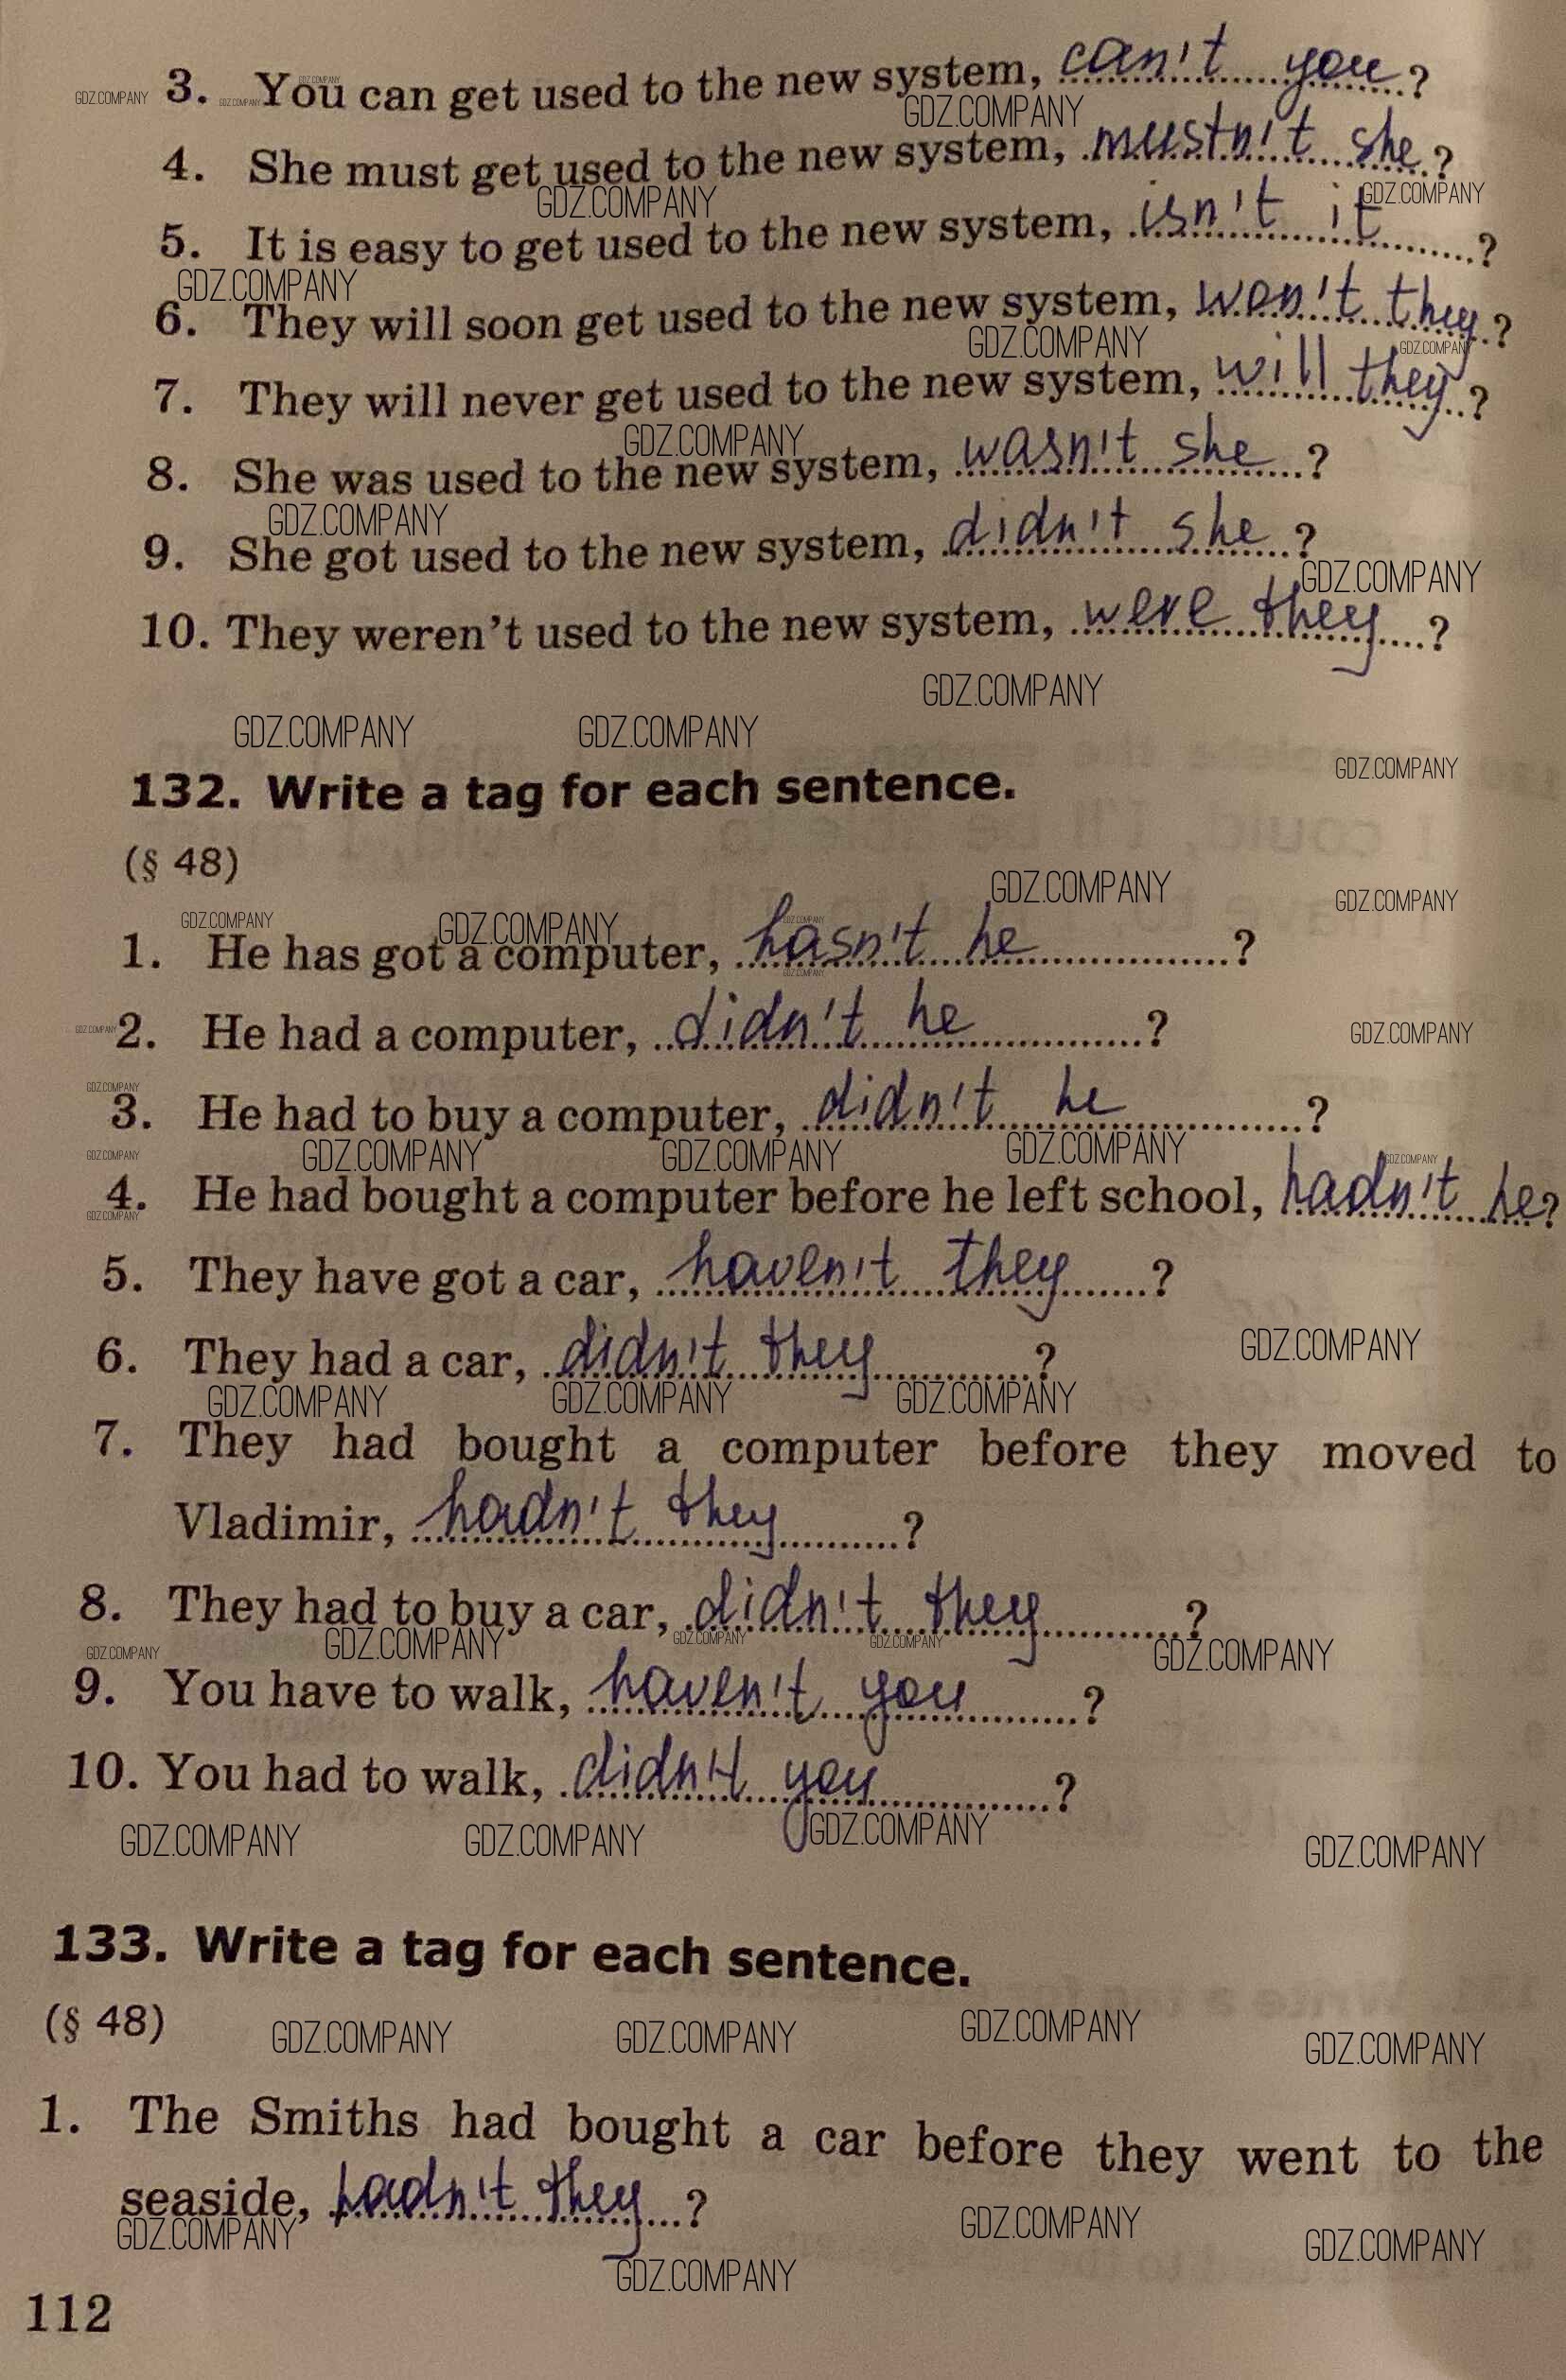 3. You can get used to the new system, can't you?
4. She must get used to the new system, mustn't she?
5. It is easy to get used to the new system, isn't it ?
6. They will soon get used to the new system, won't they?
7. They will never get used to the new system, will they?
8. She was used to the new system, wasn't she ?
9. She got used to the new system, didn't she ?
10. They weren't used to the new system, were they ?
132. Write a tag for each sentence.
(§ 48)
1. He has got a computer, hasn't he ?
2. He had a computer, didn't he ?
3. He had to buy a computer, didn't he ?
4. He had bought a computer before he left school, hadn't he?
5. They have got a car, haven't they ?
6. They had a car, didn't they ?
7. They had bought a computer before they moved to
Vladimir, hadn't they ?
8. They had to buy a car, didn't they ?
9. You have to walk, haven't you ?
10. You had to walk, didn't you ?
133. Write a tag for each sentence.
(§ 48)
1. The Smiths had bought a car before they went to the
seaside, hadn't they ?
112
GDZ.COMPANY